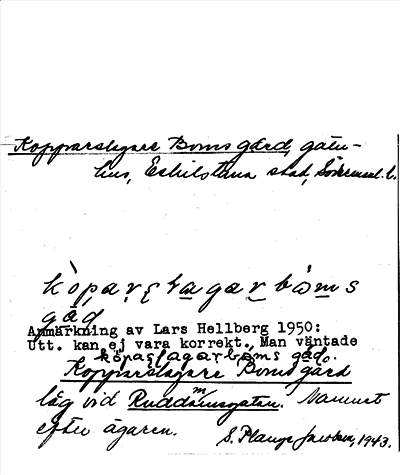 Kopparslagare Boms gård, gatu-
hus, Eskilstuna stad, Söderманl. l.
kòpaṛṣḷagarbòms
gåḍ
Anmärkning av Lars Hellberg 1950:
Utt. kan ej vara korrekt. Man väntade
kòpaṣḷagarboms gåḍ.
Kopparslagare Boms gård
låg vid Ruddammsgatan. Namnet
efter ägaren.
S. Plange Jacobson, 1943.